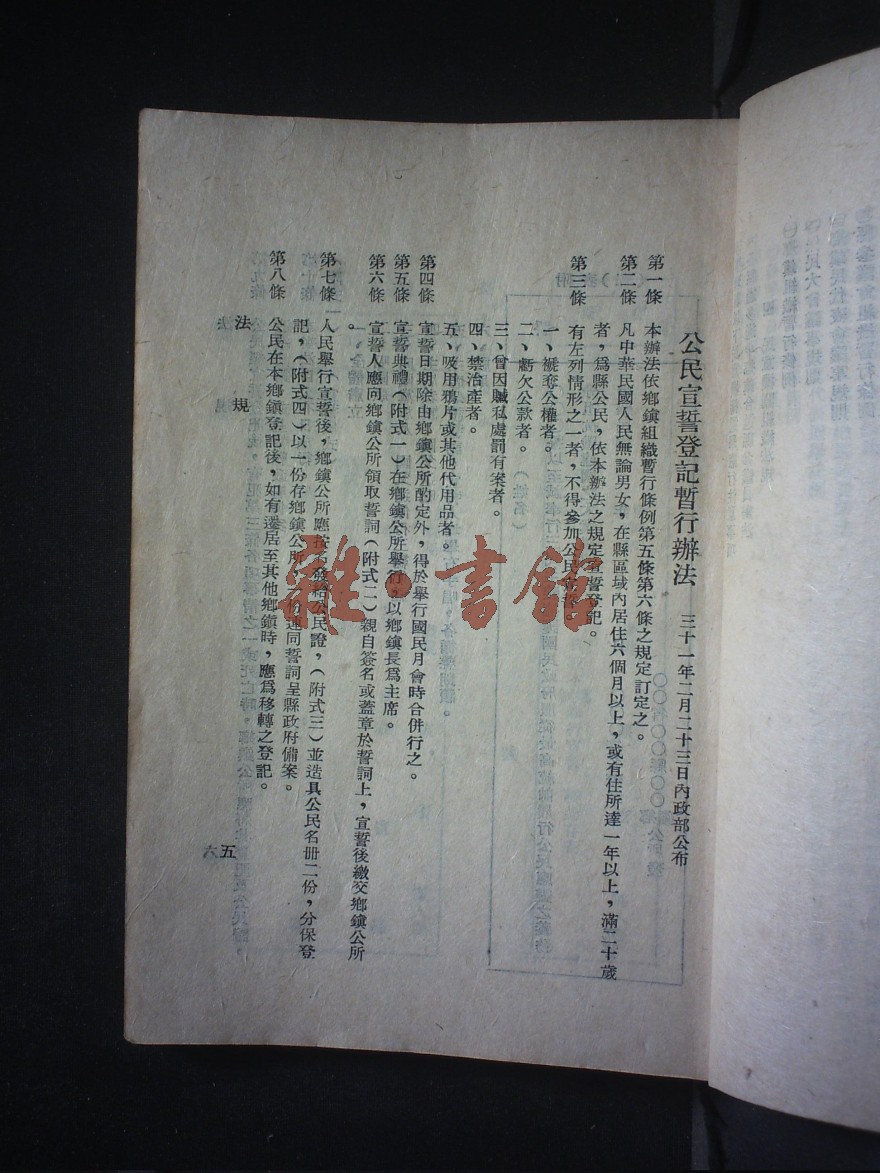 公民宣誓登記暫行辦法 三十一年二月二十三日內政部公布
第一條 本辦法依鄉鎮組織暫行條例第五條第六條之規定訂定之。
第二條 凡中華民國人民無論男女,在縣區域內居住六個月以上,或有住所達一年以上,滿二十歲
者,爲縣公民,依本辦法之規定宣誓登記。
第三條 有左列情形之一者,不得參加公民宣誓。
一、褫奪公權者。
二、虧欠公款者。
三、曾因贓私處罰有案者。
四、禁治產者。
五、吸用鴉片或其他代用品者。
第四條 宣誓日期除由鄉鎮公所酌定外,得於舉行國民月會時合併行之。
第五條 宣誓典禮(附式一)在鄉鎮公所舉行,以鄉鎮長爲主席。
第六條 宣誓人應向鄉鎮公所領取誓詞(附式二)親自簽名或蓋章於誓詞上,宣誓後繳交鄉鎮公所
。
第七條 人民舉行宣誓後,鄉鎮公所應按名發給公民證,(附式三)並造具公民名册二份,分保登
記,(附式四)以一份存鄉鎮公所,一份連同誓詞呈縣政府備案。
第八條 公民在本鄉鎮登記後,如有遷居至其他鄉鎮時,應爲移轉之登記。
法規
六五
雜·書館